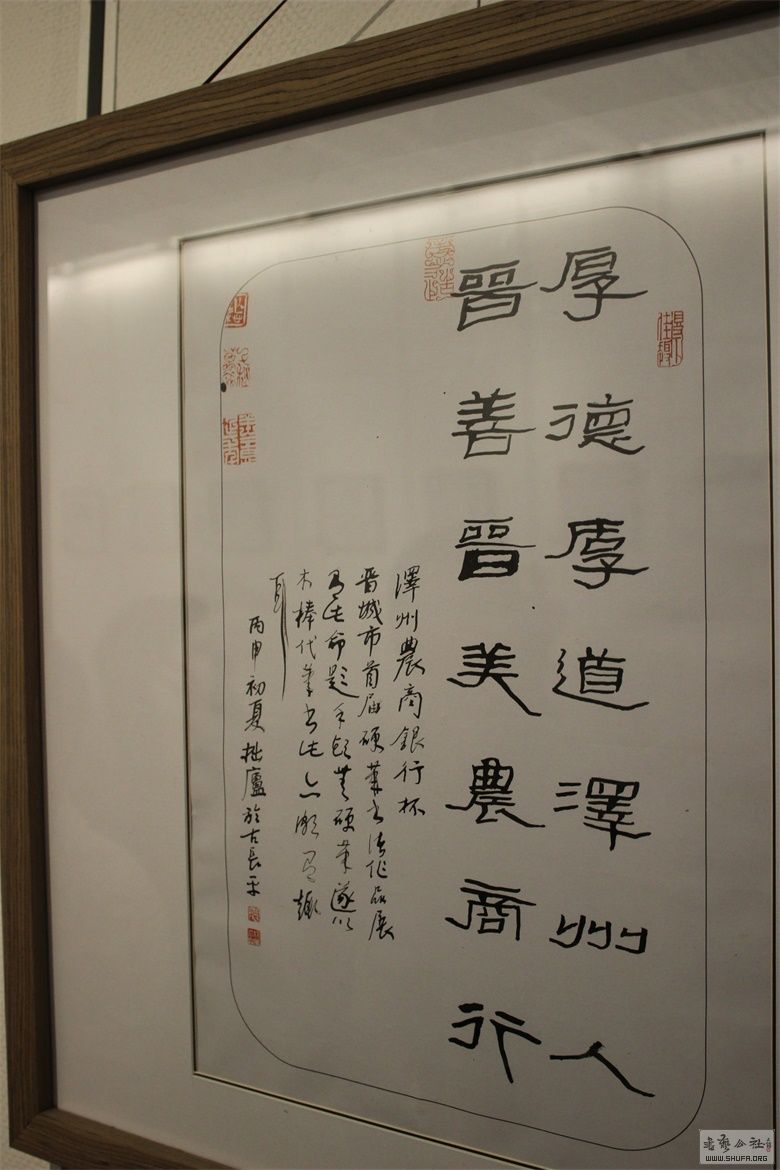 厚德厚道澤州人
晉善晉美農商行
澤州農商銀行杯
晉城市首届硬筆書法作品展
命題手 硬筆遂以
木棒代筆書 趣
耳
丙申初夏拙廬於古長平
書藝公社
WWW.SHUFA.ORG